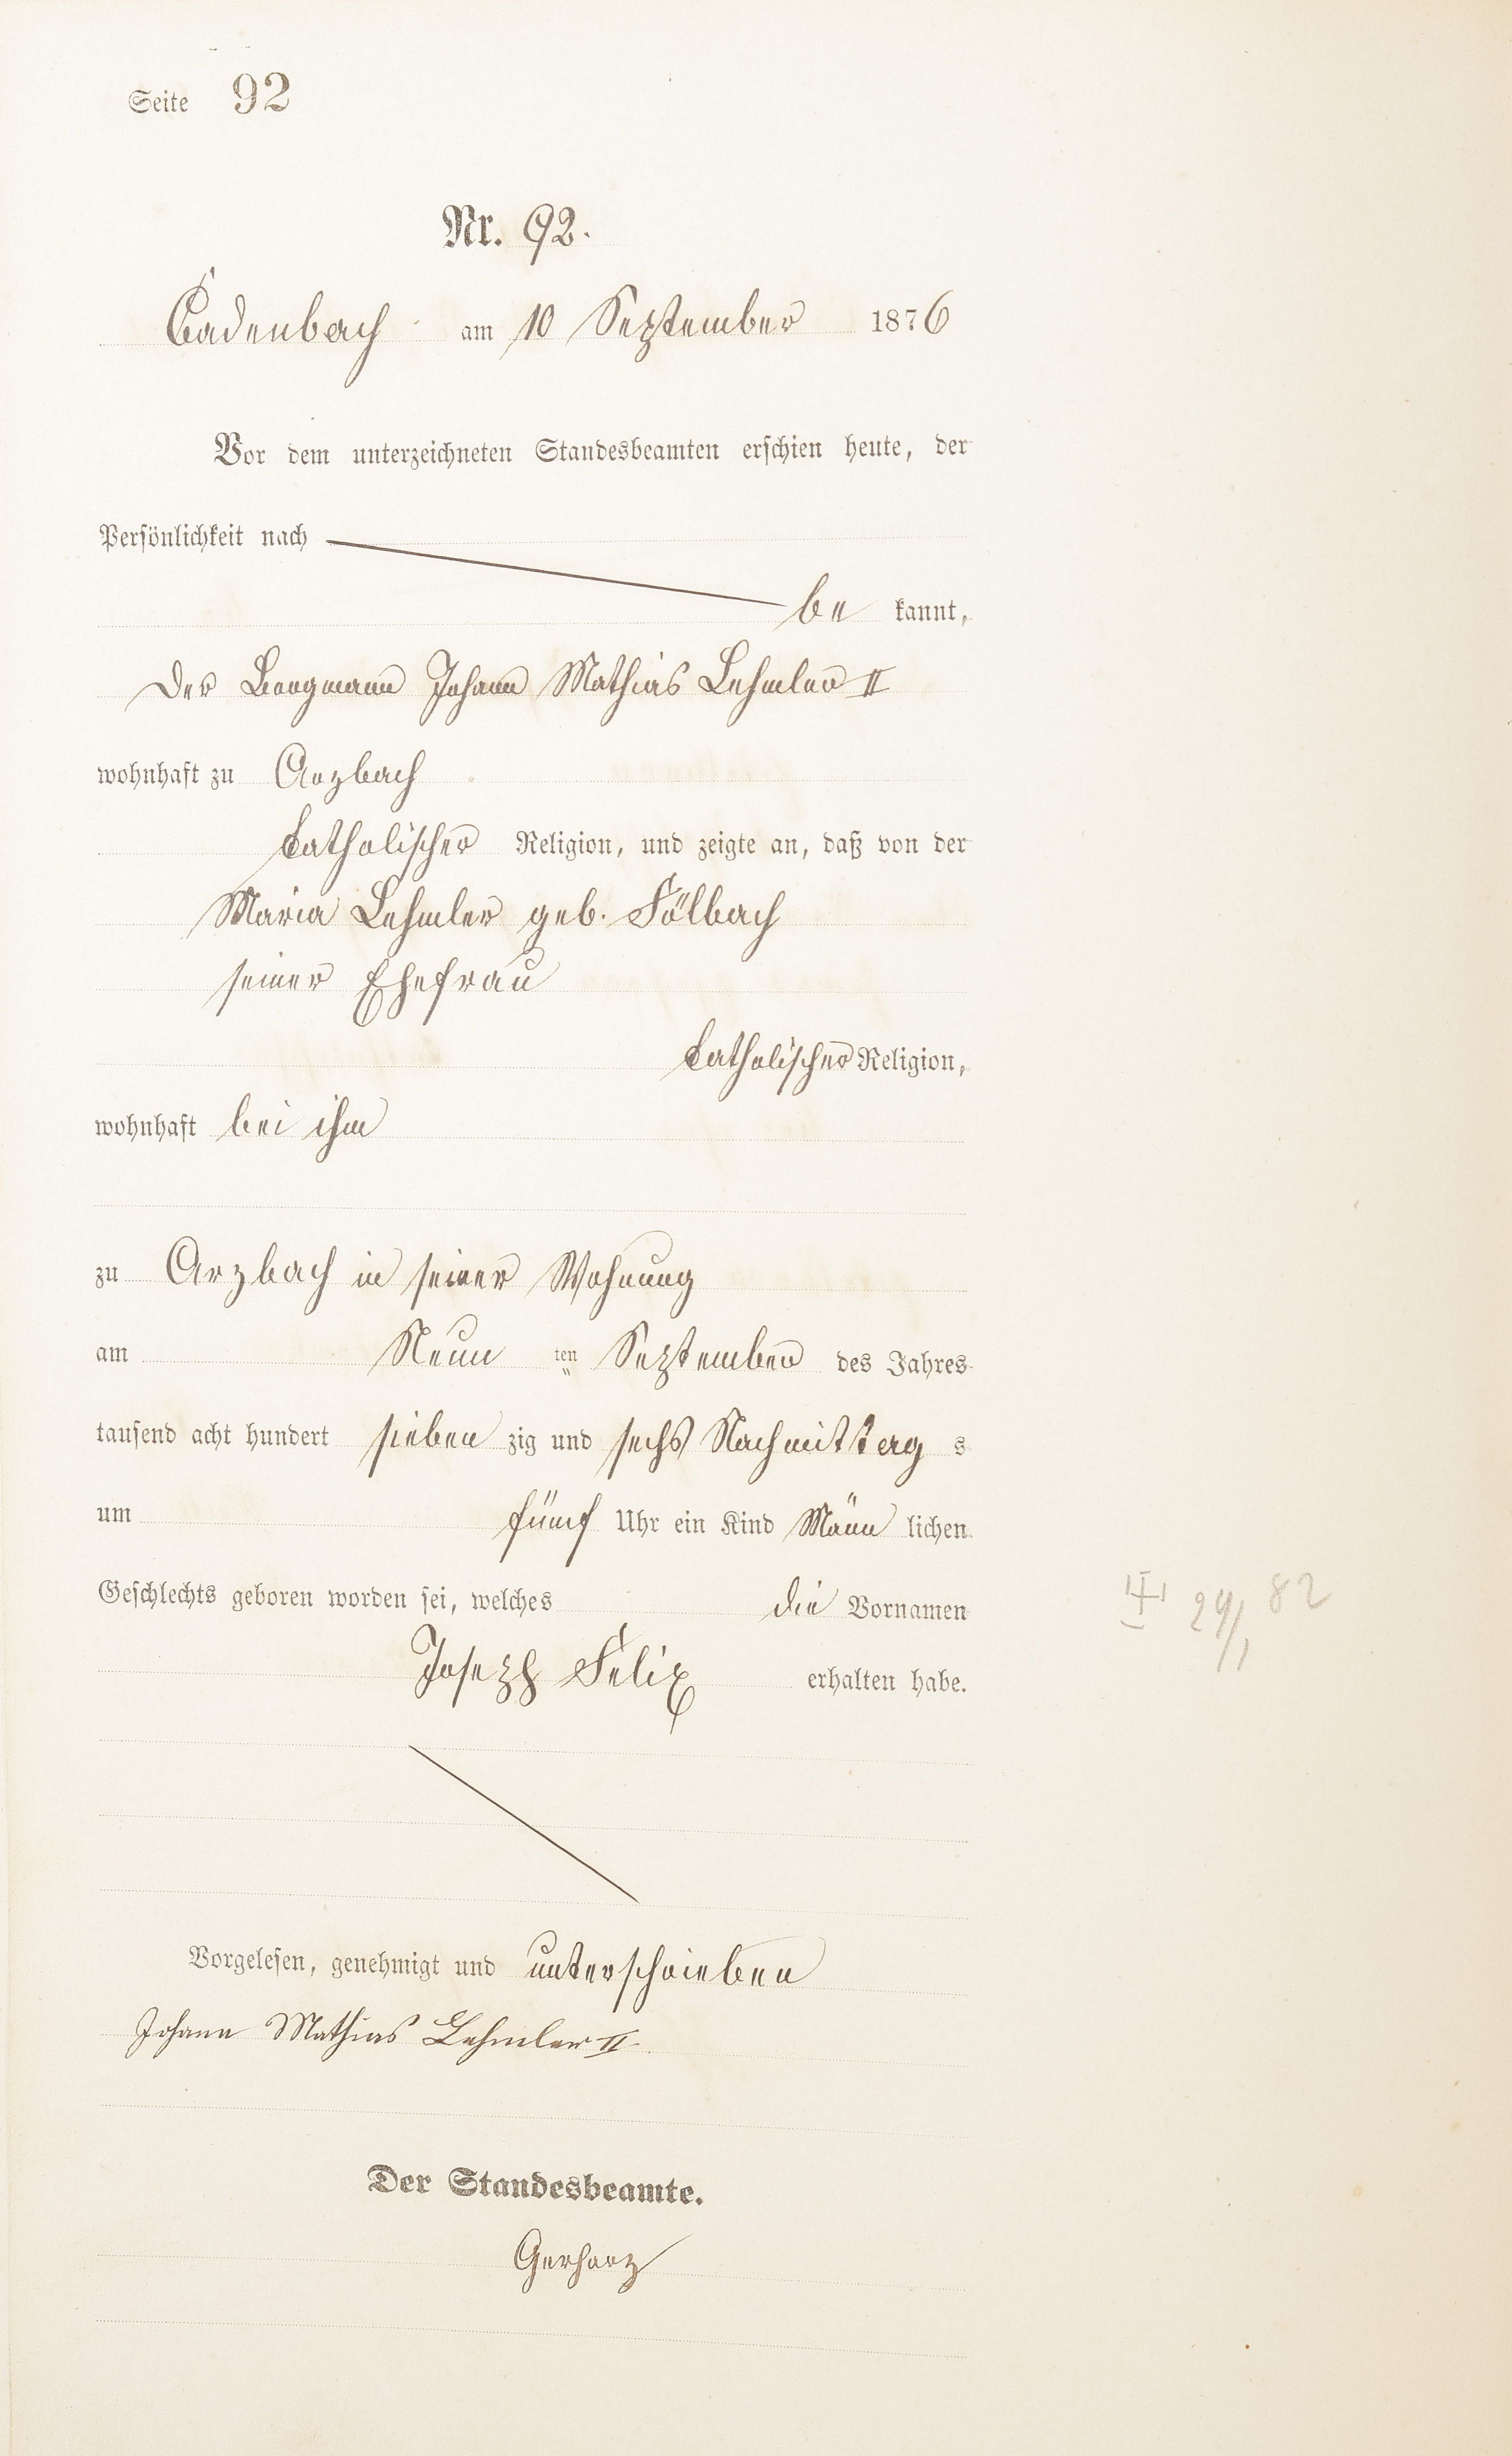 Seite 92
Nr. 92.
Cadenbach am 10 September 1876
Vor dem unterzeichneten Standesbeamten erschien heute, der
Persönlichkeit nach
be kannt,
der Bergmann Johann Mathias Lehmler II
wohnhaft zu Arzbach
katholischer Religion, und zeigte an, daß von der
Maria Lehmler geb. Fölbach
seiner Ehefrau
katholischer Religion,
wohnhaft bei ihm
zu Arzbach in seiner Wohnung
am Neun ten September des Jahres
tausend acht hundert sieben zig und sechs Nachmittag s
um fünf Uhr ein Kind Männ lichen
Geschlechts geboren worden sei, welches die Vornamen
29/1 82
Joseph Felix erhalten habe.
Vorgelesen, genehmigt und unterschrieben
Johann Mathias Lehmler II
Der Standesbeamte.
Gerharz